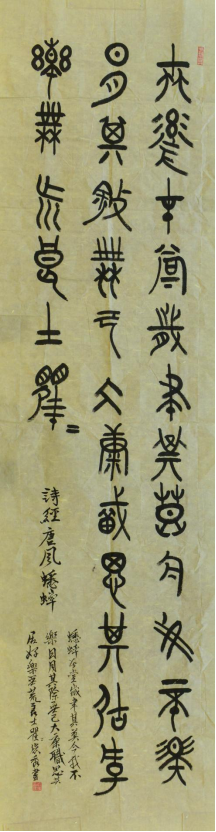 蟋蟀在堂歲聿其莫今我不樂
日月其除無已大康職思其居好
樂無荒良士瞿=
詩經唐風蟋蟀
蟋蟀在堂歲聿其莫今我不
樂日月其除無已大康職思其
居好樂無荒良士瞿